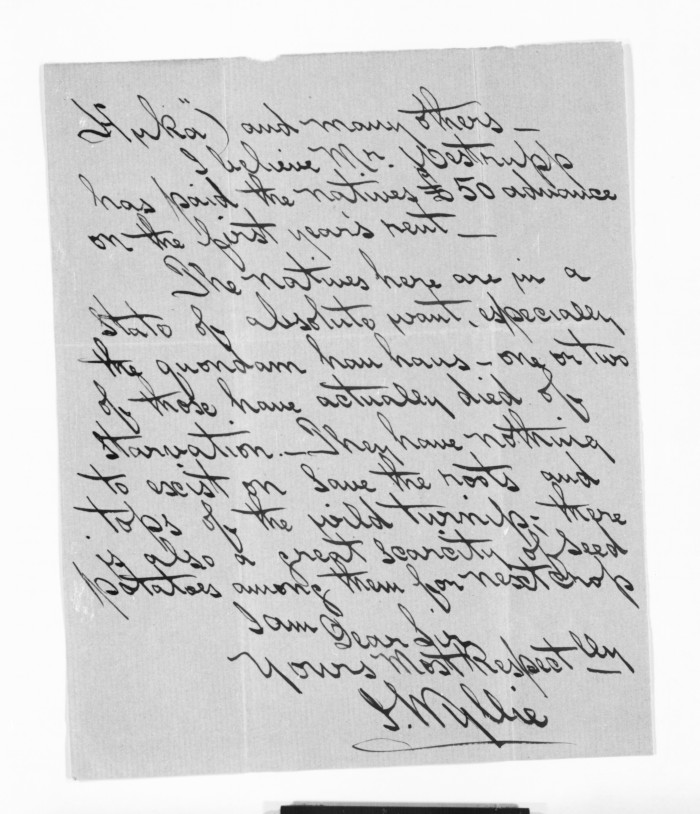 Huka") and many others —
I believe Mr. Westrupp
has paid the natives £50 advance
on the first year's rent —
The natives here are in a
state of absolute want, especially
the quondam hau haus – one or two
of those have actually died of
starvation. — They have nothing
to exist on save the roots and
tops of the wild turnip; there
is also a great scarcity of seed
potatoes among them for next crop
I am Dear Sir
Yours Most Respectlly
J. Wyllie